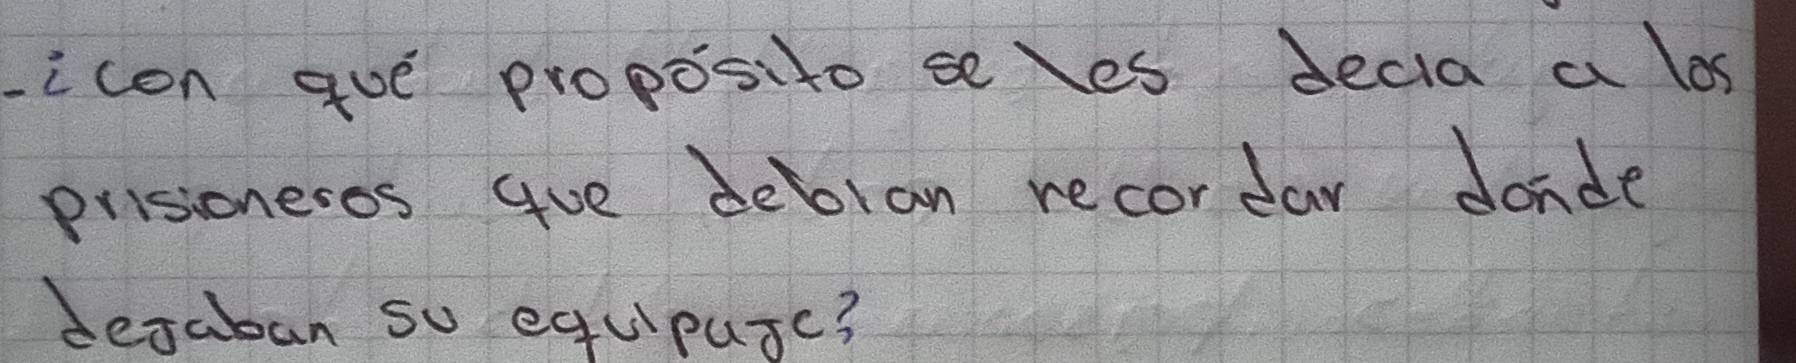 -¿con qué propósito se les decia a los
prisioneros que debian recordar dónde
dejaban su equipaje?